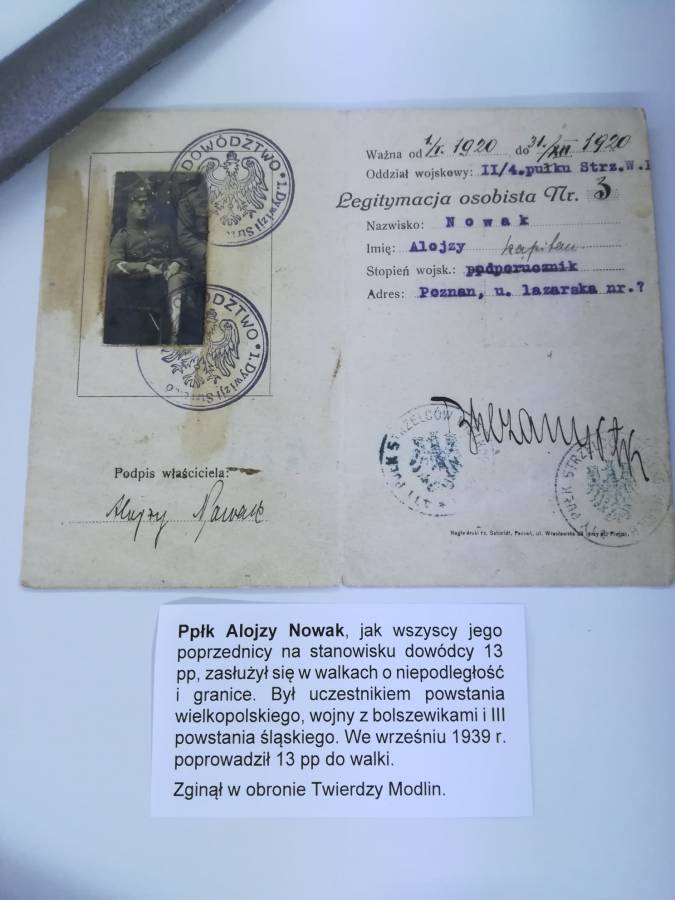 DOWÓDZTWO • 1. Dywizji
DOWÓDZTWO • 1. Dywizji
Podpis właściciela:
Alojzy Nowak
Ważna od 1/I. 1920 do 31/XII 1920
Oddział wojskowy: II/4.pułku Strz.W.
Legitymacja osobista Nr. 3
Nazwisko: Nowak
Imię: Alojzy kapitan
Stopień wojsk.: ppdporucznik
Adres: Poznan, u. lazarska nr.7
PUŁK STRZELCÓW
PUŁK
Schmidt, Poznań, ul.
Ppłk Alojzy Nowak, jak wszyscy jego
poprzednicy na stanowisku dowódcy 13
pp, zasłużył się w walkach o niepodległość
i granice. Był uczestnikiem powstania
wielkopolskiego, wojny z bolszewikami i III
powstania śląskiego. We wrześniu 1939 r.
poprowadził 13 pp do walki.
Zginął w obronie Twierdzy Modlin.